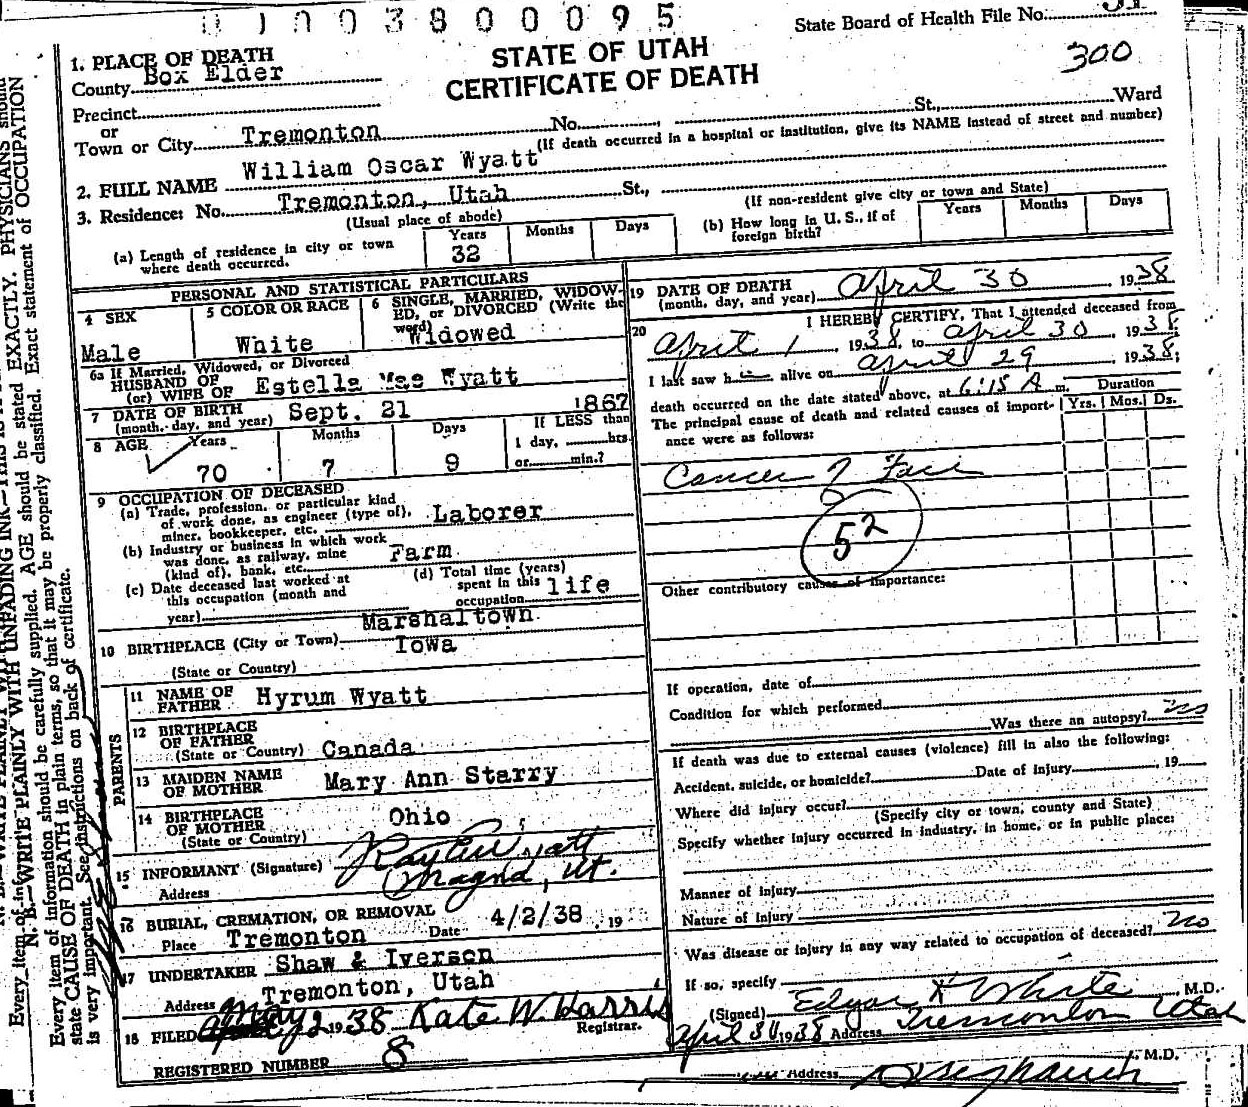 01003800095
State Board of Health File No.
300
STATE OF UTAH
CERTIFICATE OF DEATH
1. PLACE OF DEATH
County Box Elder
Precinct
or
Town or City Tremonton No. St., Ward
(If death occurred in a hospital or institution, give its NAME instead of street and number)
2. FULL NAME William Oscar Wyatt
3. Residence: No. Tremonton, Utah St.,
(Usual place of abode) (If non-resident give city or town and State)
(a) Length of residence in city or town where death occurred. Years 32 Months Days
(b) How long in U. S., if of foreign birth? Years Months Days
PERSONAL AND STATISTICAL PARTICULARS
4 SEX Male
5 COLOR OR RACE White
6 SINGLE, MARRIED, WIDOWED, or DIVORCED (Write the word) Widowed
6a If Married, Widowed, or Divorced
HUSBAND OF
(or) WIFE OF Estella Mae Wyatt
7 DATE OF BIRTH
(month, day, and year) Sept. 21 1867
8 AGE Years 70 Months 7 Days 9
If LESS than
1 day, hrs.
or min.?
9 OCCUPATION OF DECEASED
(a) Trade, profession, or particular kind
of work done, as engineer (type of),
miner, bookkeeper, etc. Laborer
(b) Industry or business in which work
was done, as railway, mine
(kind of), bank, etc. Farm
(c) Date deceased last worked at
this occupation (month and
year)
(d) Total time (years)
spent in this
occupation life
10 BIRTHPLACE (City or Town) Marshaltown
(State or Country) Iowa
PARENTS
11 NAME OF
FATHER Hyrum Wyatt
12 BIRTHPLACE
OF FATHER
(State or Country) Canada
13 MAIDEN NAME
OF MOTHER Mary Ann Starry
14 BIRTHPLACE
OF MOTHER
(State or Country) Ohio
15 INFORMANT (Signature) Wyatt
Address Magna, Ut.
16 BURIAL, CREMATION, OR REMOVAL
Place Tremonton Date 4/2/38, 19
17 UNDERTAKER Shaw & Iverson
Address Tremonton, Utah
18 FILED May 2 1938 Kate W. Harris
Registrar.
REGISTERED NUMBER 8
19 DATE OF DEATH
(month, day, and year) April 30 1938
20 I HEREBY CERTIFY, That I attended deceased from
April 1, 1938, to April 30, 1938
I last saw him alive on April 29, 1938;
death occurred on the date stated above, at 6:15 A m.
The principal cause of death and related causes of importance were as follows:
Duration
Yrs. Mos. Ds.
Cancer of Face
52
Other contributory causes of importance:
If operation, date of
Condition for which performed
Was there an autopsy? no
If death was due to external causes (violence) fill in also the following:
Accident, suicide, or homicide? Date of injury, 19
Where did injury occur?
(Specify city or town, county and State)
Specify whether injury occurred in industry, in home, or in public place:
Manner of injury
Nature of injury
Was disease or injury in any way related to occupation of deceased? no
If so, specify
(Signed) Edgar White M.D.
April 30 1938 Address Tremonton Utah
M.D.
Address
N. B.—WRITE PLAINLY WITH UNFADING INK—THIS IS
Every item of information should be carefully supplied. AGE should be stated EXACTLY. PHYSICIANS should
state CAUSE OF DEATH in plain terms, so that it may be properly classified. Exact statement of OCCUPATION
is very important. See instructions on back of certificate.